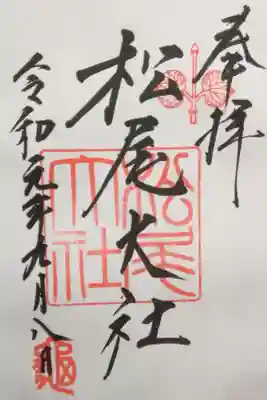 奉拝
松尾大社
松尾大社
令和元年九月八日
亀